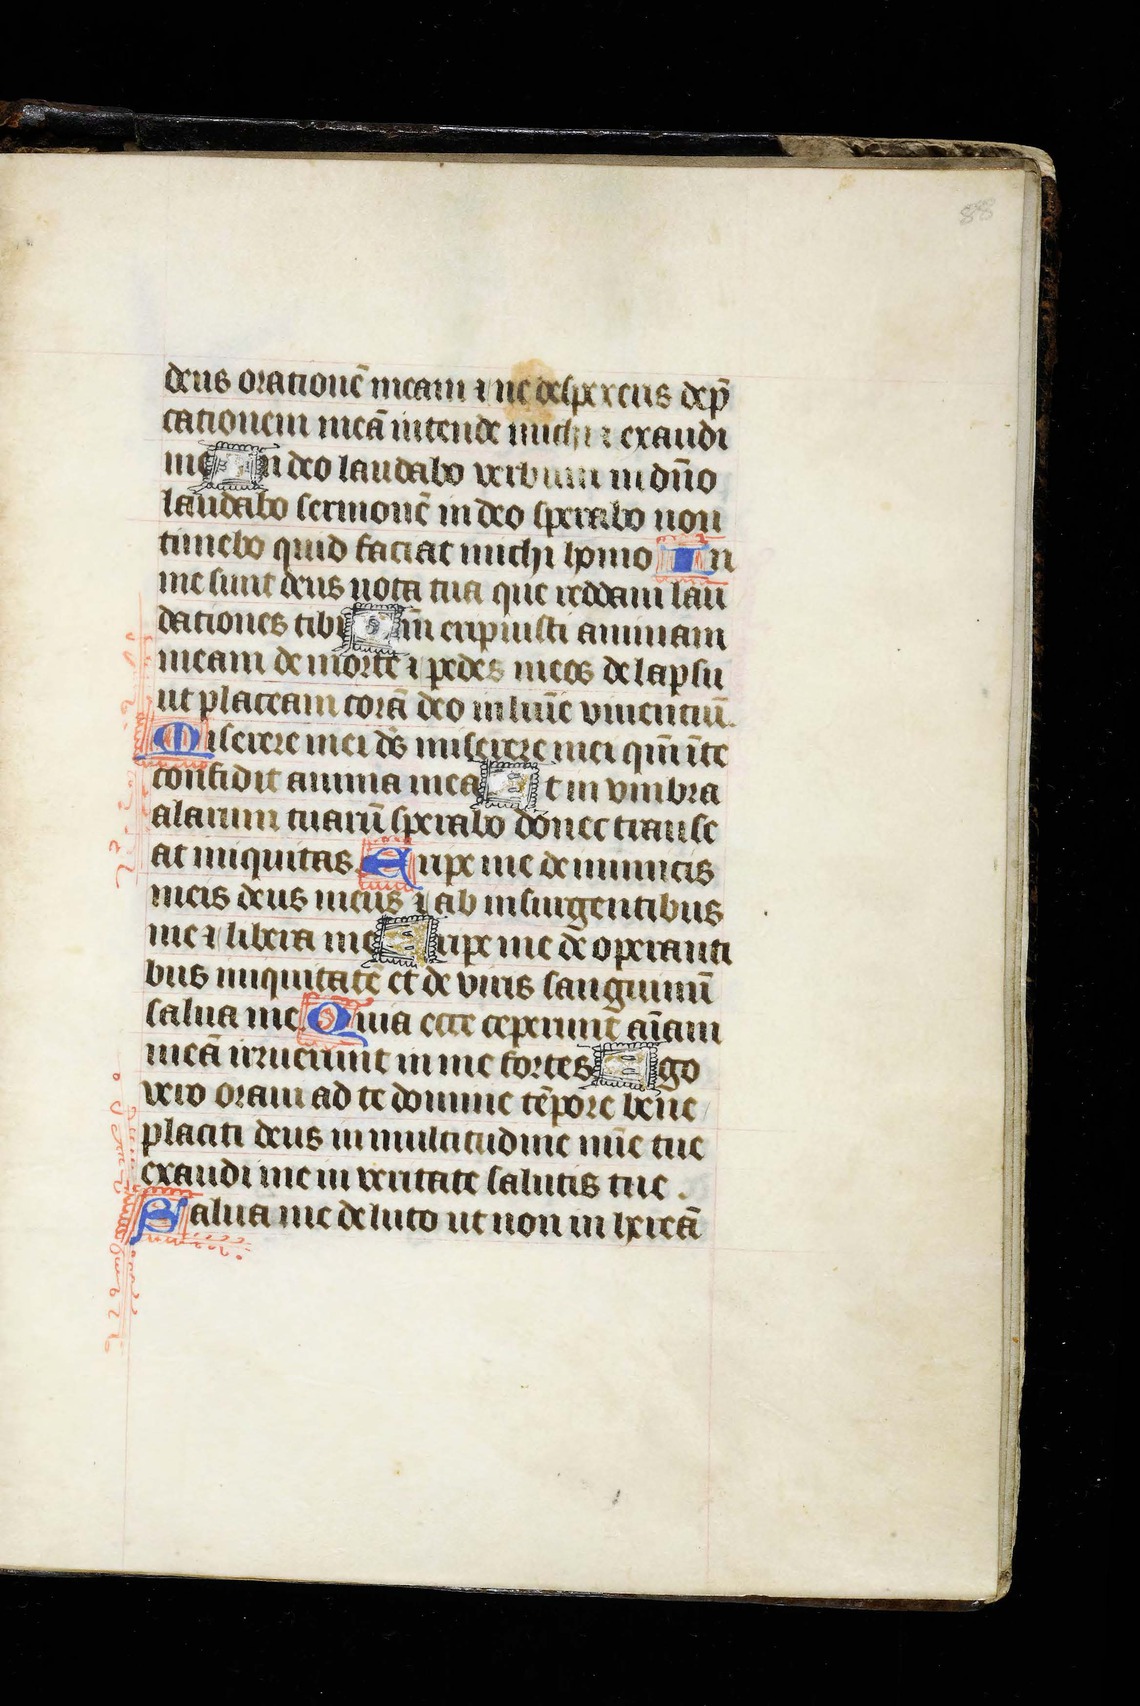 88
deus orationē meam ⁊ ne despexeris dep̄
cationem meā intende michi ⁊ exaudi
me In deo laudabo verbum in dño
laudabo sermonē in deo sperabo non
timebo quid faciat michi homo In
me sunt deus uota tua que reddam lau
dationes tibi Qm̄ eripuisti animam
meam de morte ⁊ pedes meos de lapsu
ut placeam corā deo in luīe viuentiū.
Miserere mei ds̄ miserere mei qm̄ īte
confidit anima mea Et in vmbra
alarum tuarū sperabo donec transe
at iniquitas Eripe me de inimicis
meis deus meus ⁊ ab insurgentibus
me ⁊ libera me Eripe me de operanti
bus iniquitatē et de viris sanguinū
salua me Quia ecce ceperunt aīam
meā irruerunt in me fortes Ego
vero oraui ad te domine tēpore bene
placiti deus in multitudine mīe tue
exaudi me in veritate salutis tue
Salua me de luto ut non in hereā